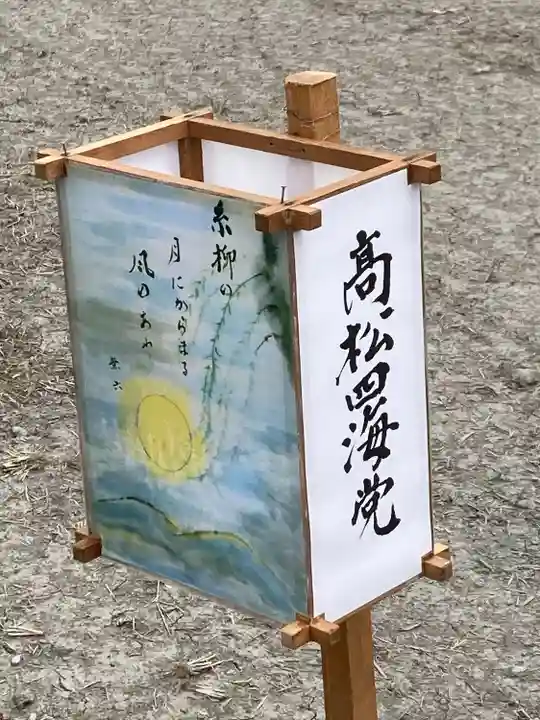 糸柳の
月にからまる
風のあり
髙松四海党